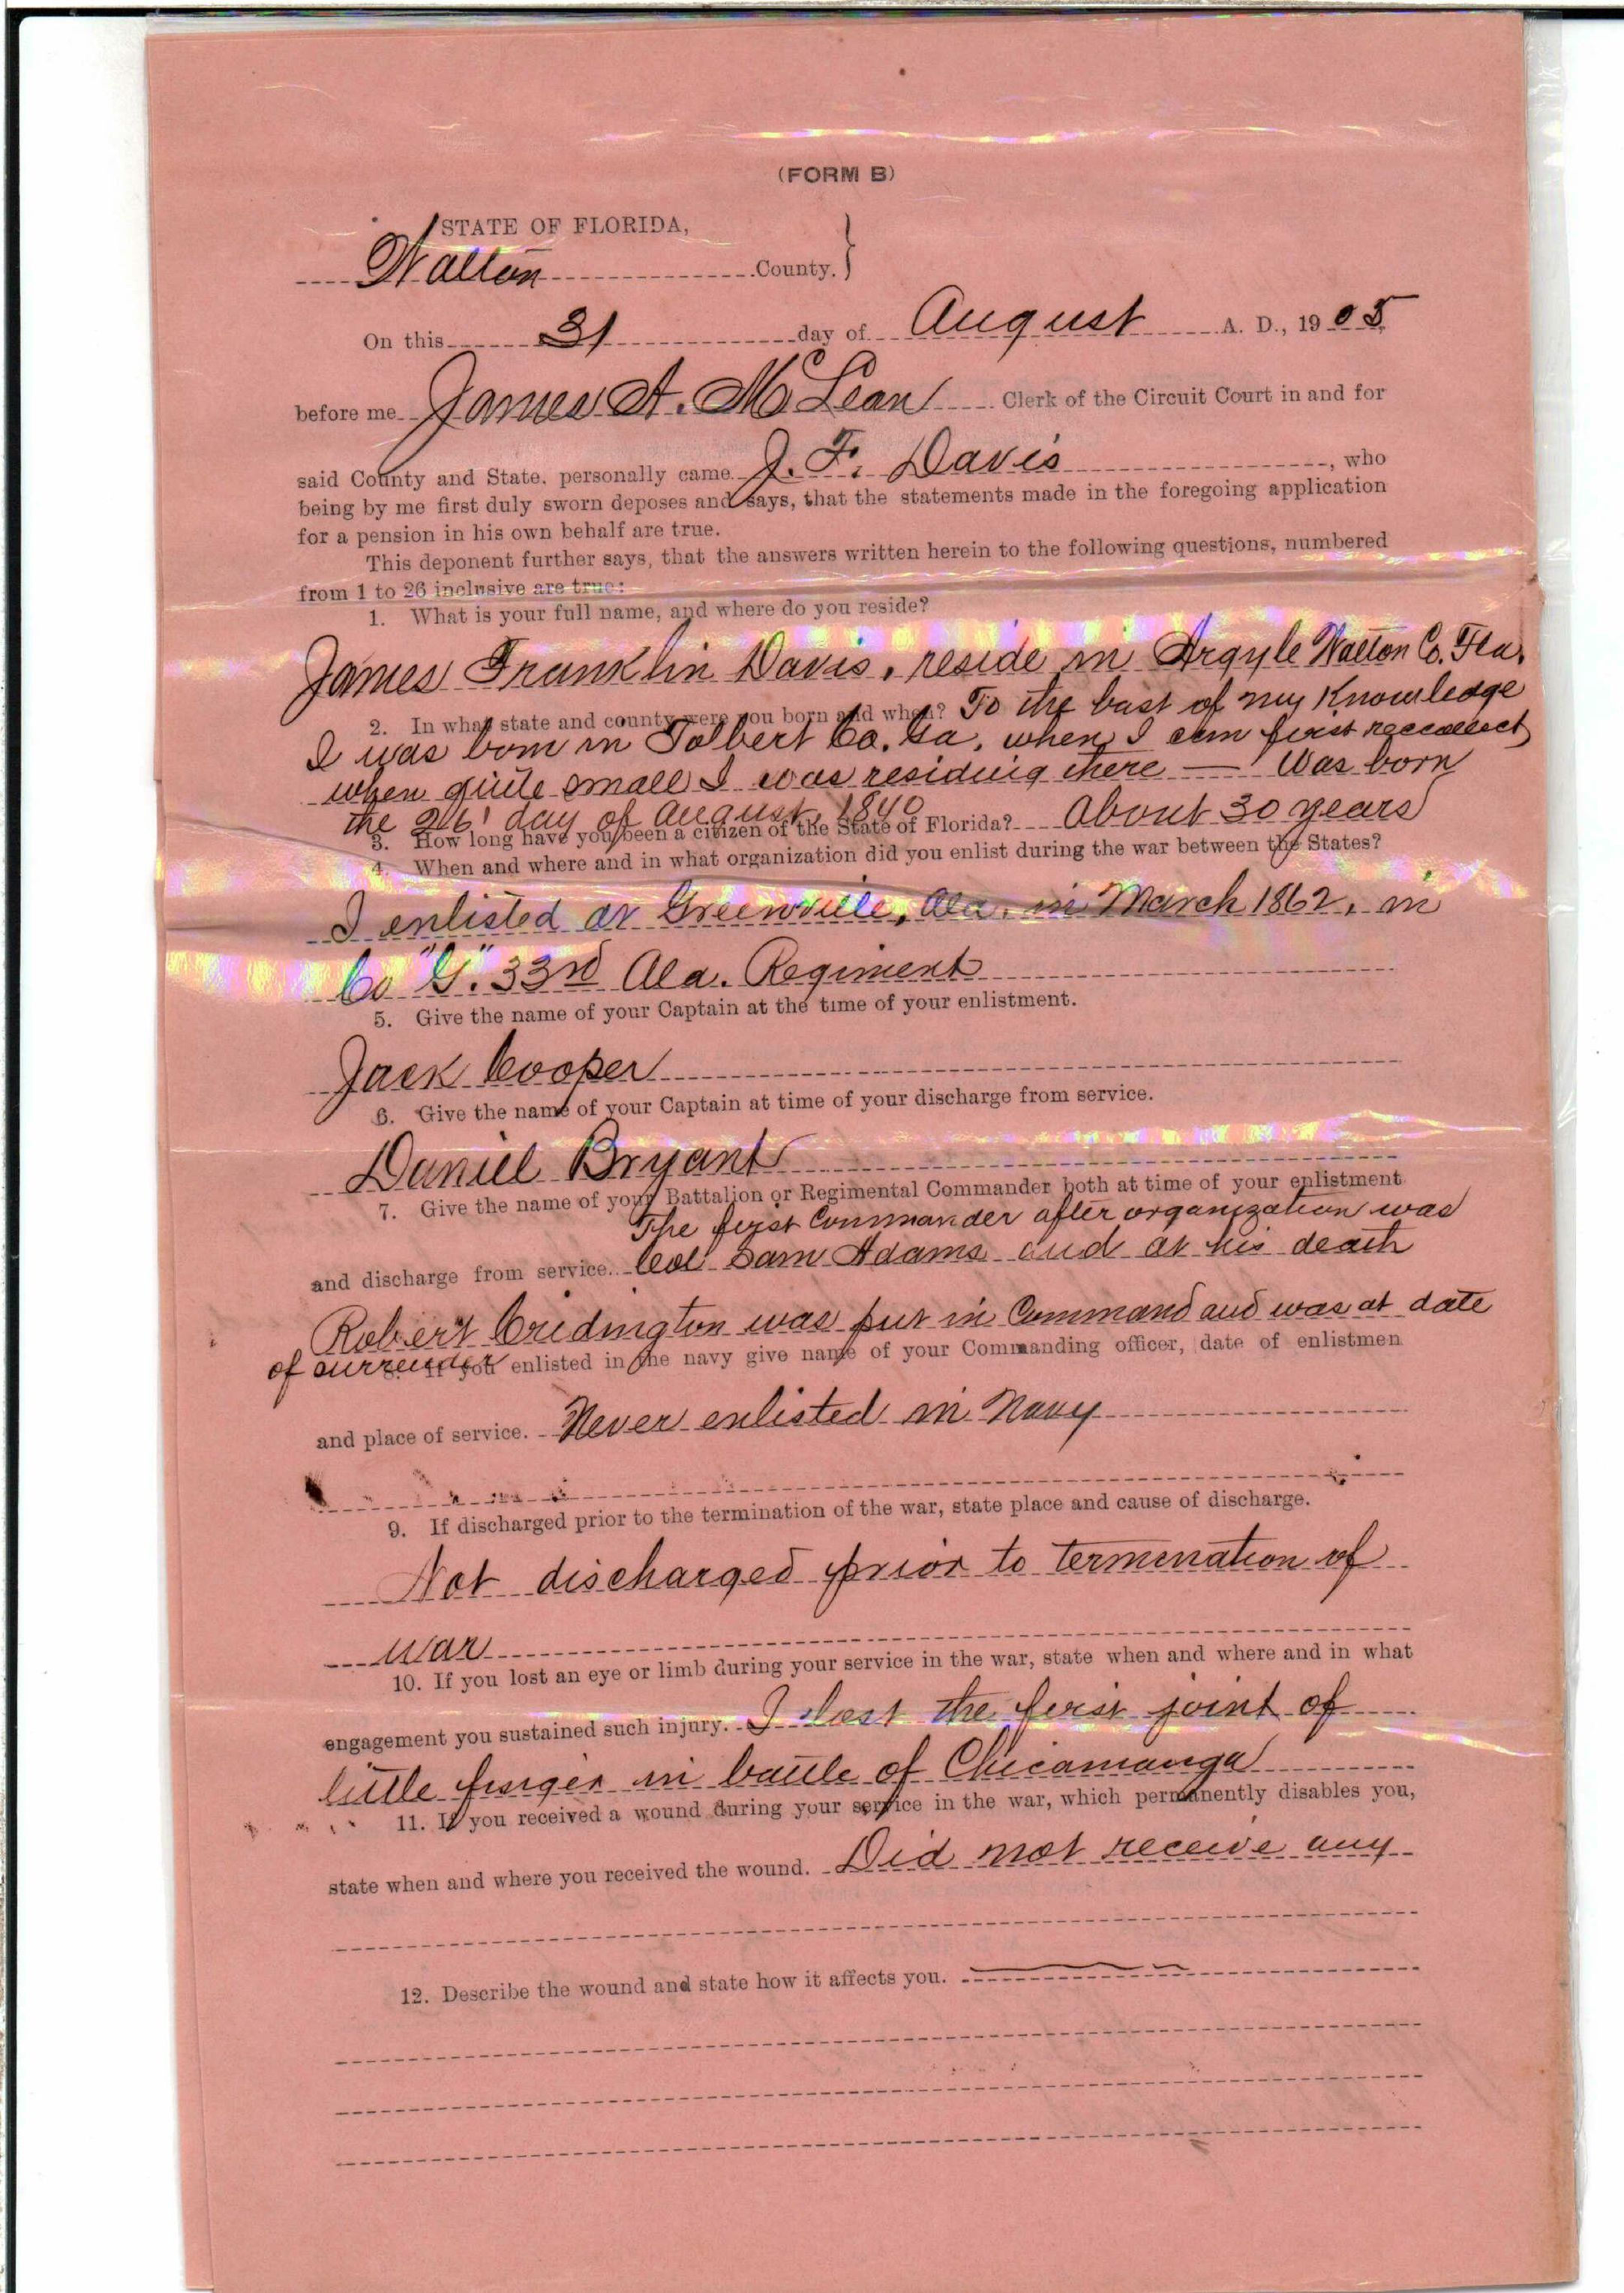 (FORM B)
STATE OF FLORIDA,
Walton County.
On this 31 day of August A. D., 1905
before me James A. McLean Clerk of the Circuit Court in and for
said County and State, personally came J. F. Davis, who
being by me first duly sworn deposes and says, that the statements made in the foregoing application
for a pension in his own behalf are true.
This deponent further says, that the answers written herein to the following questions, numbered
from 1 to 26 inclusive are true:
1. What is your full name, and where do you reside?
James Franklin Davis, reside in Argyle Walton Co. Fla.
2. In what state and county were you born and when? To the bast of my Knowledge
I was born in Tolbert Co. Ga, when I can first reccollect
when quite small I was residing there — Was born
the 26' day of August, 1840
3. How long have you been a citizen of the State of Florida? About 30 years
4. When and where and in what organization did you enlist during the war between the States?
I enlisted at Greenville, Ala. in March 1862, in
Co "G". 33rd Ala. Regiment
5. Give the name of your Captain at the time of your enlistment.
Jack Cooper
6. Give the name of your Captain at time of your discharge from service.
Daniel Bryant
7. Give the name of your Battalion or Regimental Commander both at time of your enlistment
The first Commander after organization was
and discharge from service. Col Sam Adams and at his death
Robert Cridington was put in Command and was at date
of surrender
8. If you enlisted in the navy give name of your Commanding officer, date of enlistmen
and place of service. Never enlisted in Navy
9. If discharged prior to the termination of the war, state place and cause of discharge.
Not discharged prior to termination of
war
10. If you lost an eye or limb during your service in the war, state when and where and in what
engagement you sustained such injury. I lost the first joint of
little finger in battle of Chicamauga
11. If you received a wound during your service in the war, which permanently disables you,
state when and where you received the wound. Did not receive any
12. Describe the wound and state how it affects you.